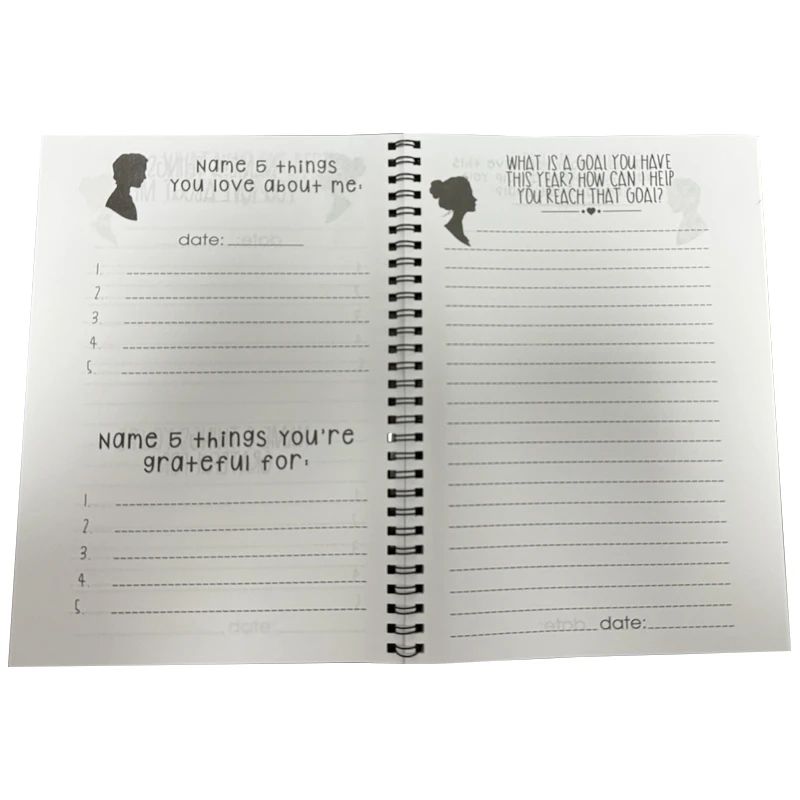 Name 5 things
you love about me:
date:
1.
2.
3.
4.
5.
Name 5 things you're
grateful for:
1.
2.
3.
4.
5.
WHAT IS A GOAL YOU HAVE
THIS YEAR? HOW CAN I HELP
YOU REACH THAT GOAL?
date: